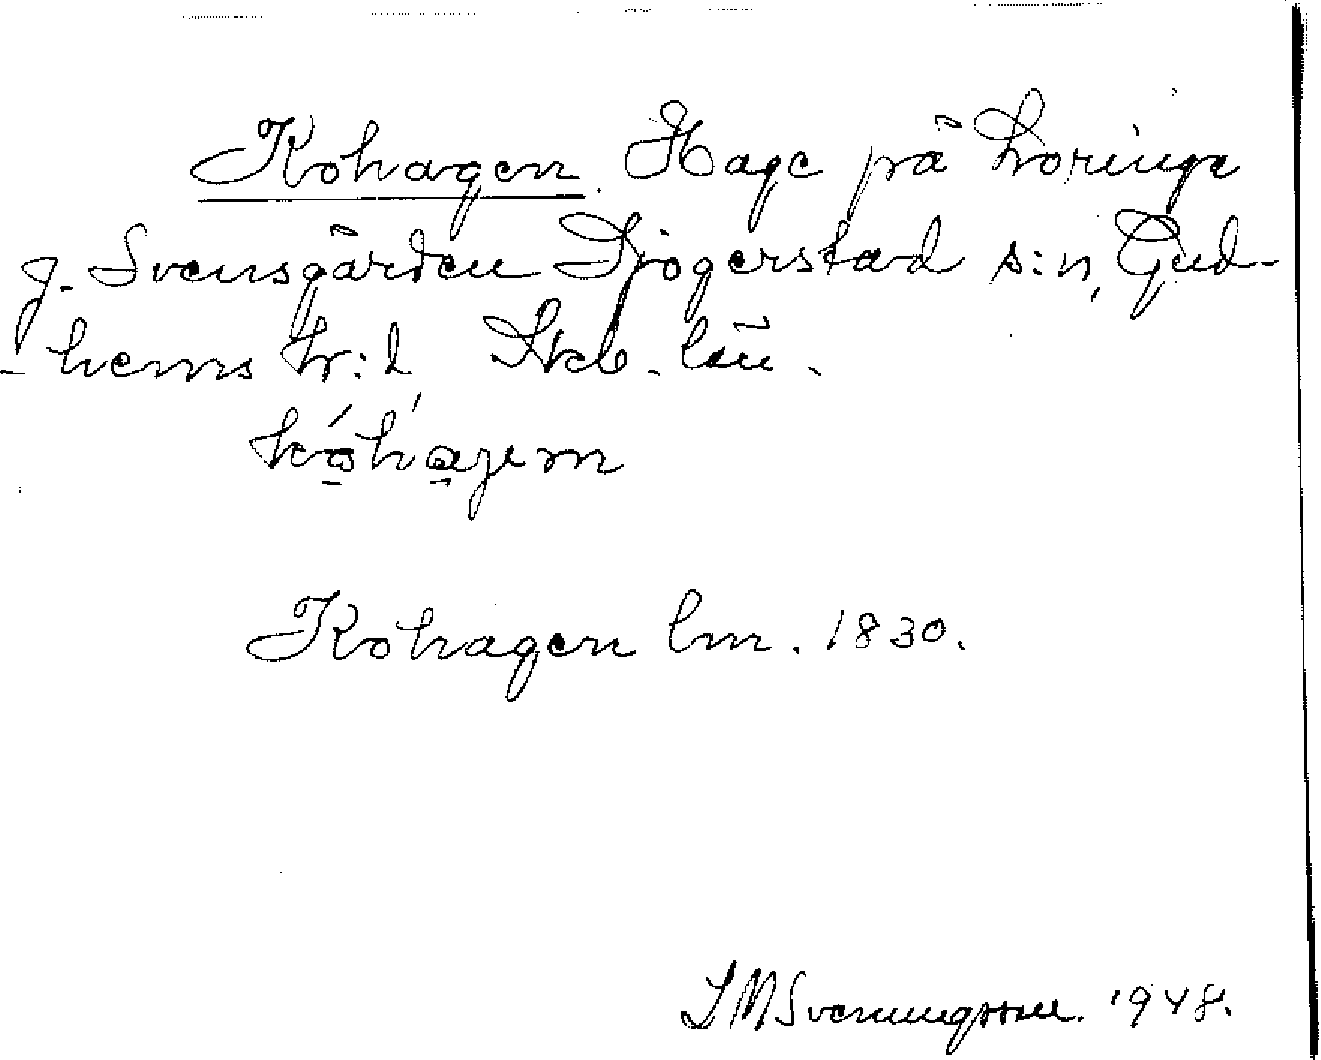 Kohagen. Hage på Loringa
g. Svensgården Djogerstad s:n, Gud-
-hems hr:d Skb. län.
kóhágem
Kohagen lm. 1830.
S M Svenungsson. 1948.